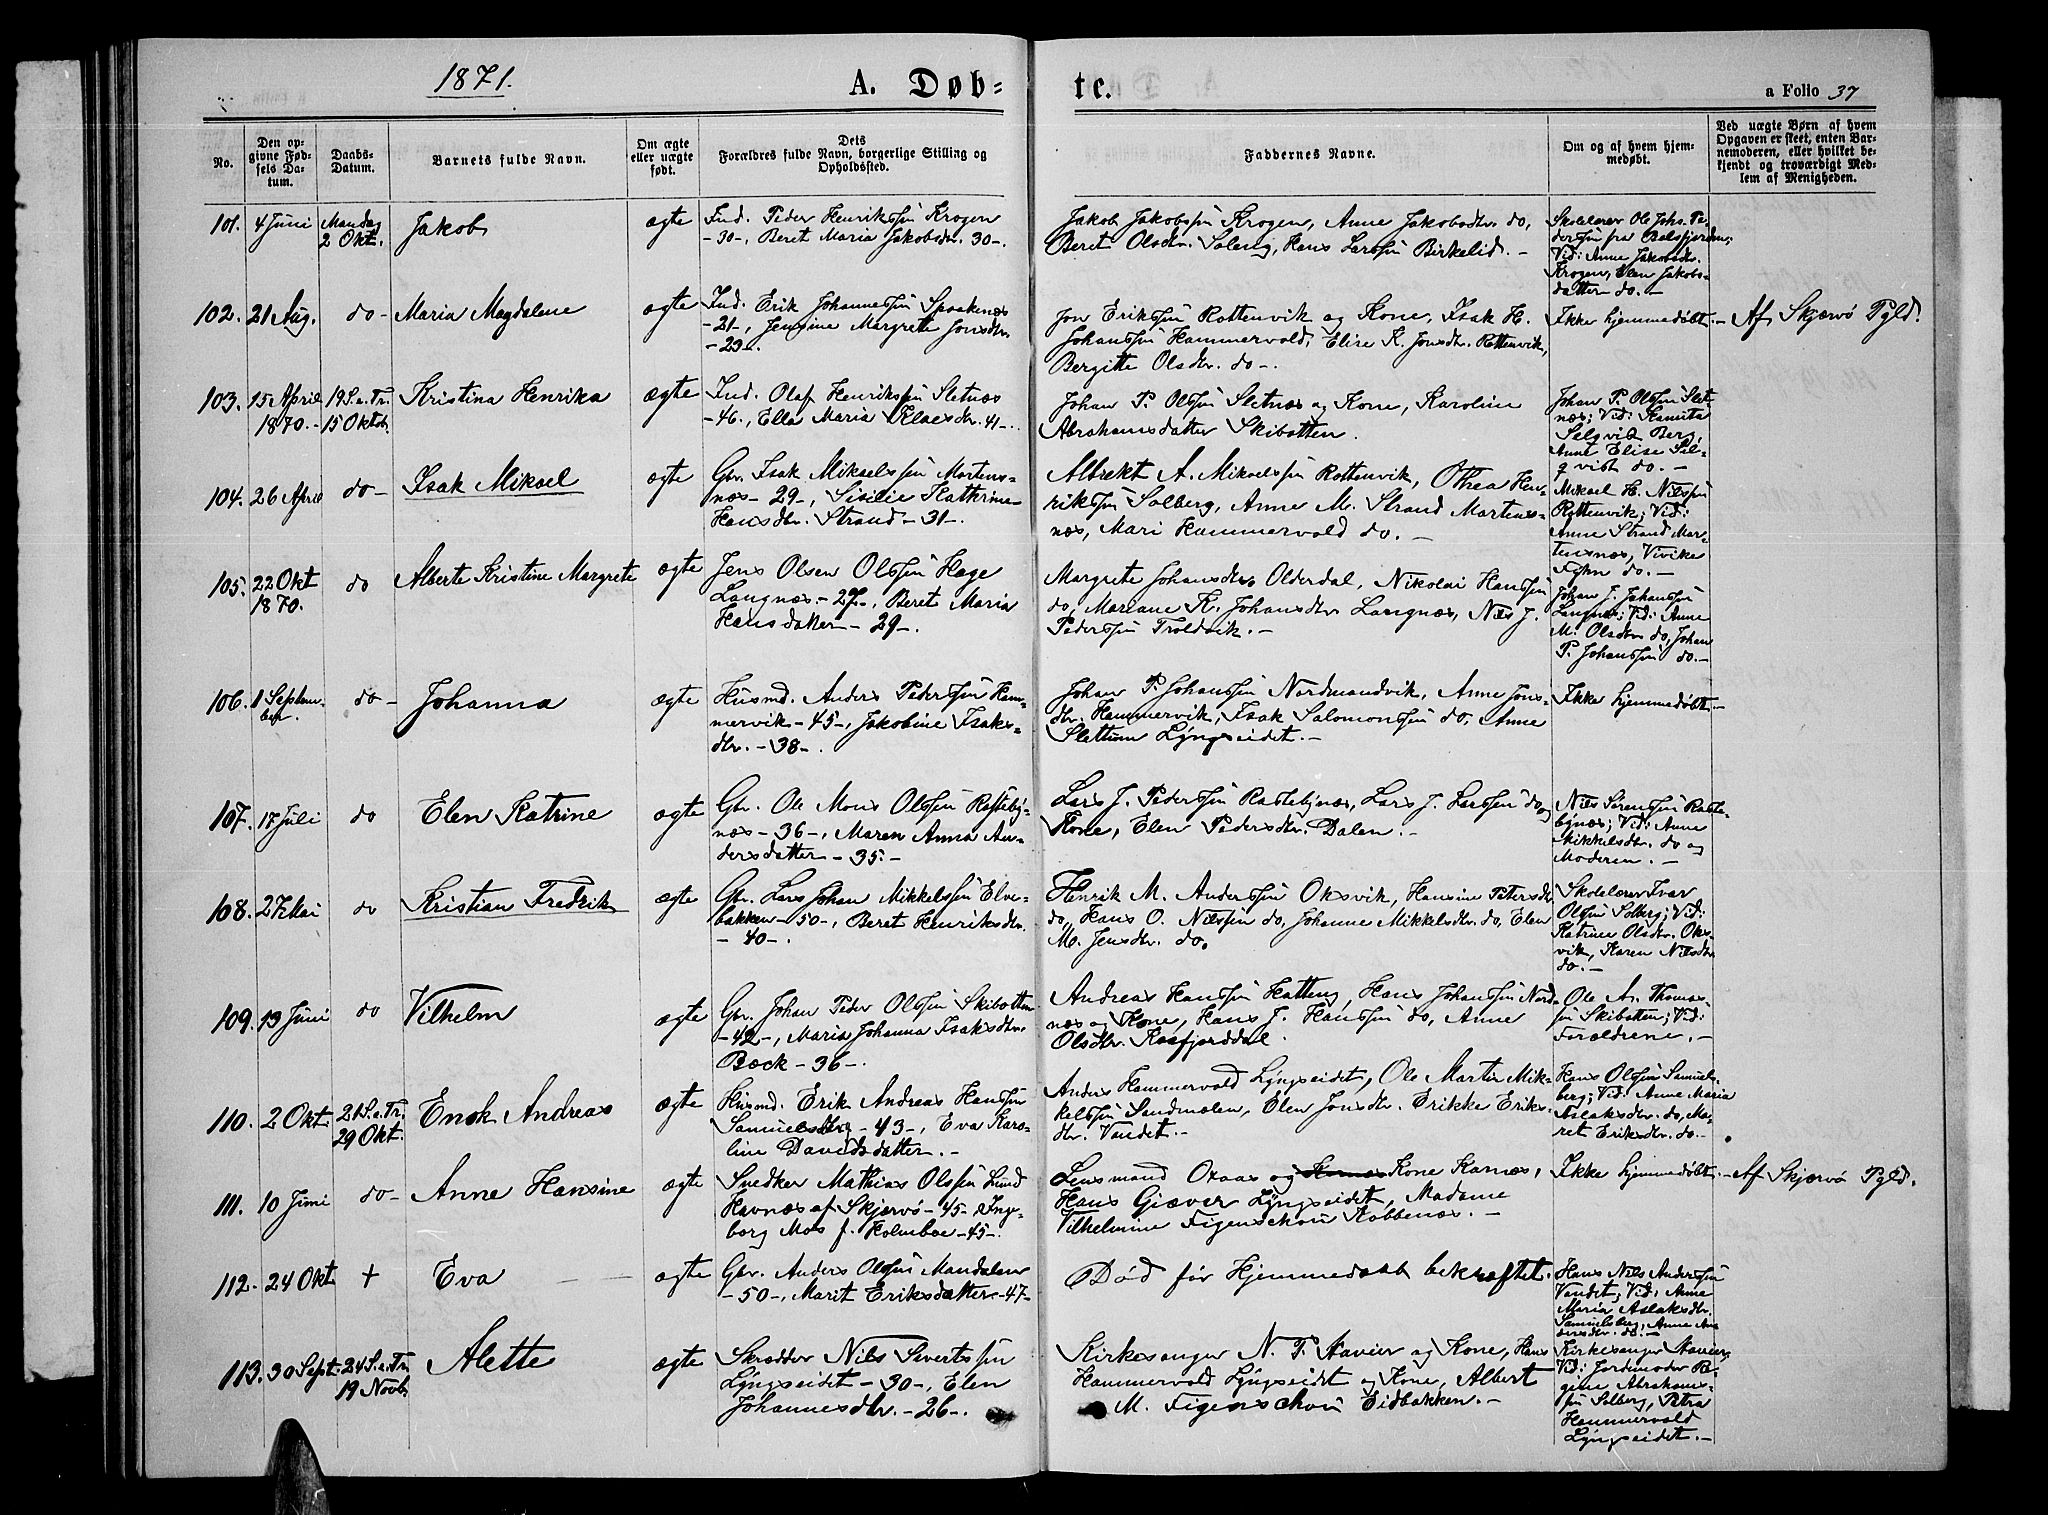 1871.
A. Døb=
te.
a Folio 37
No.
Den op-
givne Fød-
sels Da-
tum.
Daabs-
Datum.
Barnets fulde Navn.
Om ægte
eller uægte
født.
Dets
Forældres fulde Navn, borgerlige Stilling og
Opholdssted.
Faddernes Navne.
Om og af hvem hjem-
medøbt.
Ved uægte Børn af hvem
Opgaven er skeet, enten Bar-
nemoderen, eller hvilket be-
kjendt og troværdigt Med-
lem af Menigheden.
101. 4 Juni
Mandag
2 Okt.
Jakob
ægte
Ind. Peder Henrikssøn Krogen
-30-, Beret Maria Jakobsdr. 30-.
Jakob Jakobssøn Krogen, Anne Jakobsdtr. do,
Beret Olsdtr. Soleng, Hans Larssøn Birkelid. -
Skolelærer Ole Johs. Pe-
derssøn fra Balsfjorden;
Vid: Anne Jakobsdtr.
Krogen, Elen Jakobs-
datter do. -
102. 21 Aug.
do -
Maria Magdalene
ægte
Ind. Erik Johannessøn Spaaknæs
-21-, Jengine Margrete Jonsdtr.
-23-.
Jon Erikssøn Rottenvik og Kone, Isak H.
Johanssøn Hammervold, Elise K. Jonsdtr. Rottenvik,
Bergitte Olsdtr. do -.
Ikke hjemmedøbt. -
Af Skjervø Pgld.
103. 15 April
1870. -
19 S. e. Tr.
15 Oktob.
Kristina Henrika
ægte
Ind. Olaf Henrikssøn Sletnæs
-46-, Ella Maria Klaesdtr. 41-.
Johan P. Olssøn Sletnæs og Kone, Karoline
Abrahamsdatter Skibotten.
Johan P. Olssøn Slet-
næs; Vid:
Selqvist Berg,
Anne Elise Sel-
qvist do. -
104. 26 April
do -
Isak Mikael
ægte
Gbr. Isak Mikaelssøn Martens-
næs - 29 -, Sisilie Kathrina
Hansdtr. Strand - 31 -.
Albrekt A. Mikaelssøn Rottenvik, Othea Hen-
rikssøn Solberg, Anne M. Strand Martens-
næs, Mari Hammervold do. -
Mikael H. Nilssøn
Rottenvik; Vid:
Anne Strand Mar-
tensnæs, Vivike
do. -
105. 22 Okt
1870.
do
Alberte Kristine Margrete
ægte
Jens Olsen Olssøn Hage
Langnæs - 27 -, Beret Maria
Hansdatter - 29 -.
Margrete Johansdtr. Olderdal, Nikolai Hanssøn
do, Mariane K. Johansdtr Langnæs, Nils J.
Pederssøn Troldvik. -
Johan J. Johanssøn
Langnæs; Vid: Anne
M. Olsdtr do, Johan
P. Johanssøn do. -
106. 1 Septem-
ber
do -
Johanna
ægte
Husmd. Anders Pederssøn Ham-
nervik - 45 -, Jakobine Isaks-
dtr. - 38 -.
Johan P. Johanssøn Nordmandvik, Anne Jons-
dtr. Hammervik, Isak Salomonssøn do, Anne
Slettum Lyngseidet. -
Ikke hjemmedøbt. -
107. 17 Juli
do
Elen Katrine
ægte
Gbr. Ole Mons Olssøn Rastebÿ-
næs - 36 -, Maren Anna An-
dersdatter - 35. -
Lars J. Pederssøn Rastebÿnæs, Lars J. Larssøn do og
Kone, Elen Pedersdtr. Dalen. -
Nils Sørenssøn Raste-
bÿnæs; Vid: Anne
Mikkelsdtr. do og
Moderen. -
108. 27 Mai
do
Kristian Fredrik
ægte
Gbr. Lars Johan Mikkelssøn Elve-
bakken - 50 -, Beret Henriksdtr.
- 40 -.
Henrik M. Anderssøn Oksvik, Hansine Petersdtr
do, Hans O. Nilssøn do, Johanne Mikkelsdtr. do, Elen
M. Jensdtr. do.
Skolelærer Ivar
Olssøn Solberg; Vid:
Katrine Olsdtr. Oks-
vik, Karen Nilsdtr
do. -
109. 13 Juni
do
Vilhelm
ægte
Gbr. Johan Peder Olssøn Skibotten
- 42 -, Maria Johanna Isaksdtr.
Bæck - 36 -.
Andreas Hanssøn Hatteng, Hans Johanssøn Nord-
næs og Kone, Hans J. Hanssøn do, Anne
Olsdtr. Kaafjorddal.
Ole A. Thomas-
søn Skibotten; Vid:
Forældrene. -
110. 2 Okt.
21 S. e. Tr.
29 Okt.
Enok Andreas
ægte
Husmd. Erik Andreas Hanssøn
Samuelsberg - 43 -, Eva Karo-
line Davidsdatter. -
Anders Hammervold Lÿngseidet, Ole Martin Mik-
kelssøn Sandmælen, Elen Jonsdtr. Erikke Eriks-
dtr. Vandet. -
Hans Olssøn Samuels-
berg; Vid: Anne Maria
Aslaksdtr. do, Ma-
ret Eriksdtr. do. -
111. 10 Juni
do -
Anne Hansine
ægte
Snedker Mathias Olssøn Lund
Havnæs af Skjervø - 45 - & Inge-
borg Mos f. Holmboe - 45 -.
Lensmand Oxaas og Kone Karnæs,
Hans Giæver Lÿngseidet, Madame
Vilhelmine Figenschou Kobbenæs. -
Ikke hjemmedøbt. -
Af Skjervø Pgld.
112. 24 Okt
+
Eva
ægte
Gbr. Anders Olssøn Mandalen
- 50 -, Marit Eriksdatter - 47 -
Død før Hjemmedaab bekræftet.
Hans Nils Anderssøn
Vandet; Vid: Anne
Maria Aslaksdtr.
Samuelsberg, Anne An-
dersdtr. do. -
113. 30 Sept.
24 S. e. Tr.
19 Novb.
Alette
ægte
Skrædder Nils Sivertssøn
Lÿngseidet - 30 -, Elen
Johannesdtr. - 26 -.
Kirkesanger N. P. Havier og Kone, Hans
Hammervold Lÿngseidet og Kone, Albert
M. Figenschou Eidbakken. -
Kirkesanger Havier,
Vid: Jordemoder Re-
gine Abrahams-
søn Solberg, Petra
Hammervold
Lÿngseidet. -